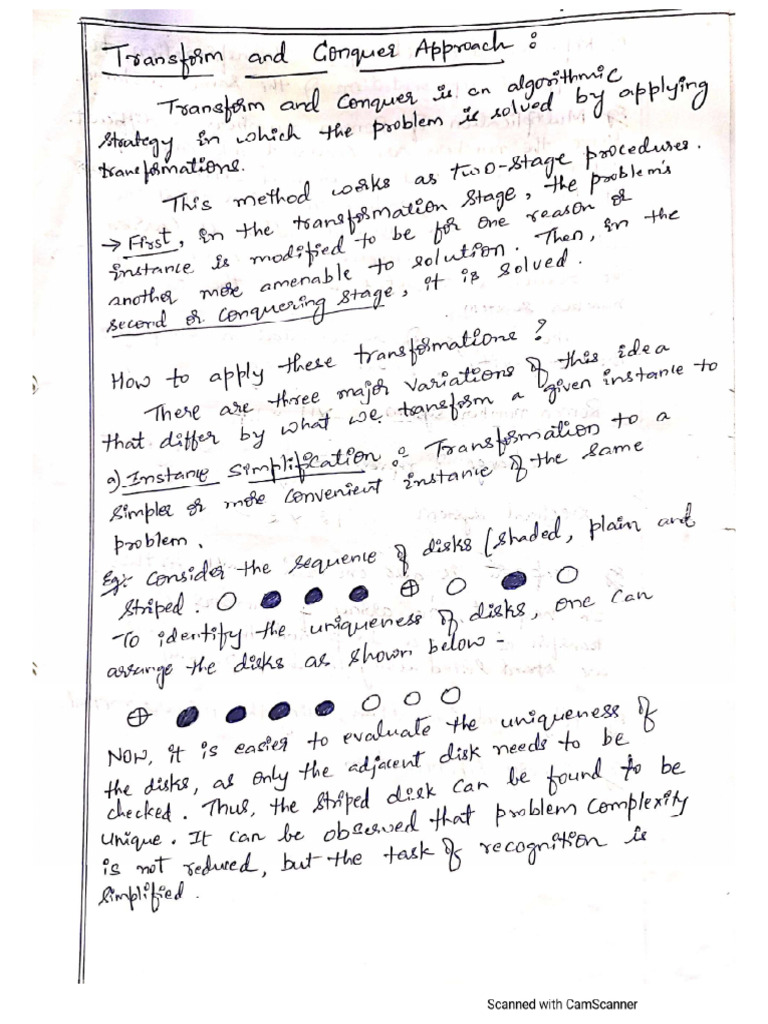 Transform and Conquer Approach :
Transform and Conquer is an algorithmic
strategy in which the problem is solved by applying
transformations.
This method works as two-stage procedures.
→ First, in the transformation stage, the problem's
instance is modified to be for one reason or
another more amenable to solution. Then, in the
second or conquering stage, it is solved.
How to apply these transformations ?
There are three major variations of this idea
that differ by what we transform a given instance to
a) Instance Simplification : Transformation to a
simpler or more convenient instance of the same
problem.
Eg:- Consider the sequence of disks (shaded, plain and
striped.
To identify the uniqueness of disks, one can
arrange the disks as shown below -
Now, it is easier to evaluate the uniqueness of
the disks, as only the adjacent disk needs to be
checked. Thus, the striped disk can be found to be
unique. It can be observed that problem complexity
is not reduced, but the task of recognition is
simplified.
Scanned with CamScanner